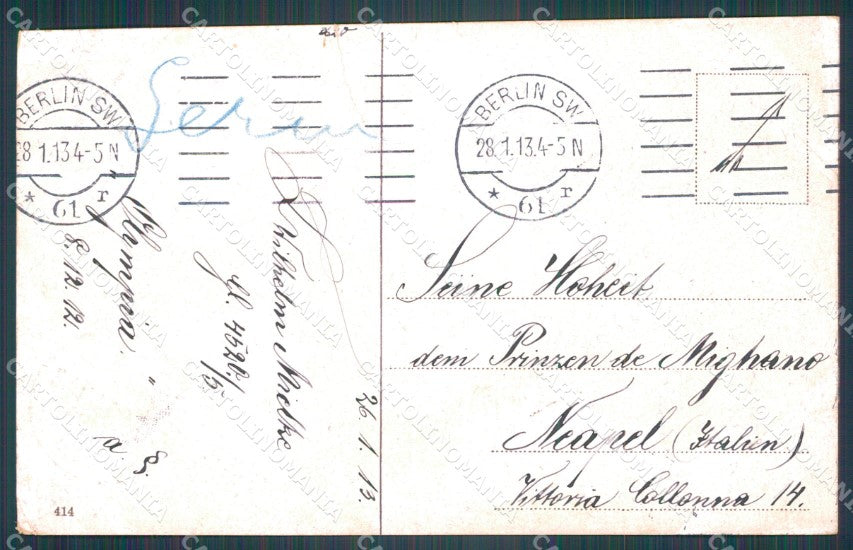 BERLIN SW
28.1.13.4-5 N
* 61 r
BERLIN SW
28.1.13.4-5 N
* 61 r
"Olympia."
8.12.12.
a 8.
Wilhelm Mielke
26.1.13.
Seine Hoheit
dem Prinzen de Mighano
Neapel (Italien)
Vittória Collonna 14.
414
CARTOLINOMANIA